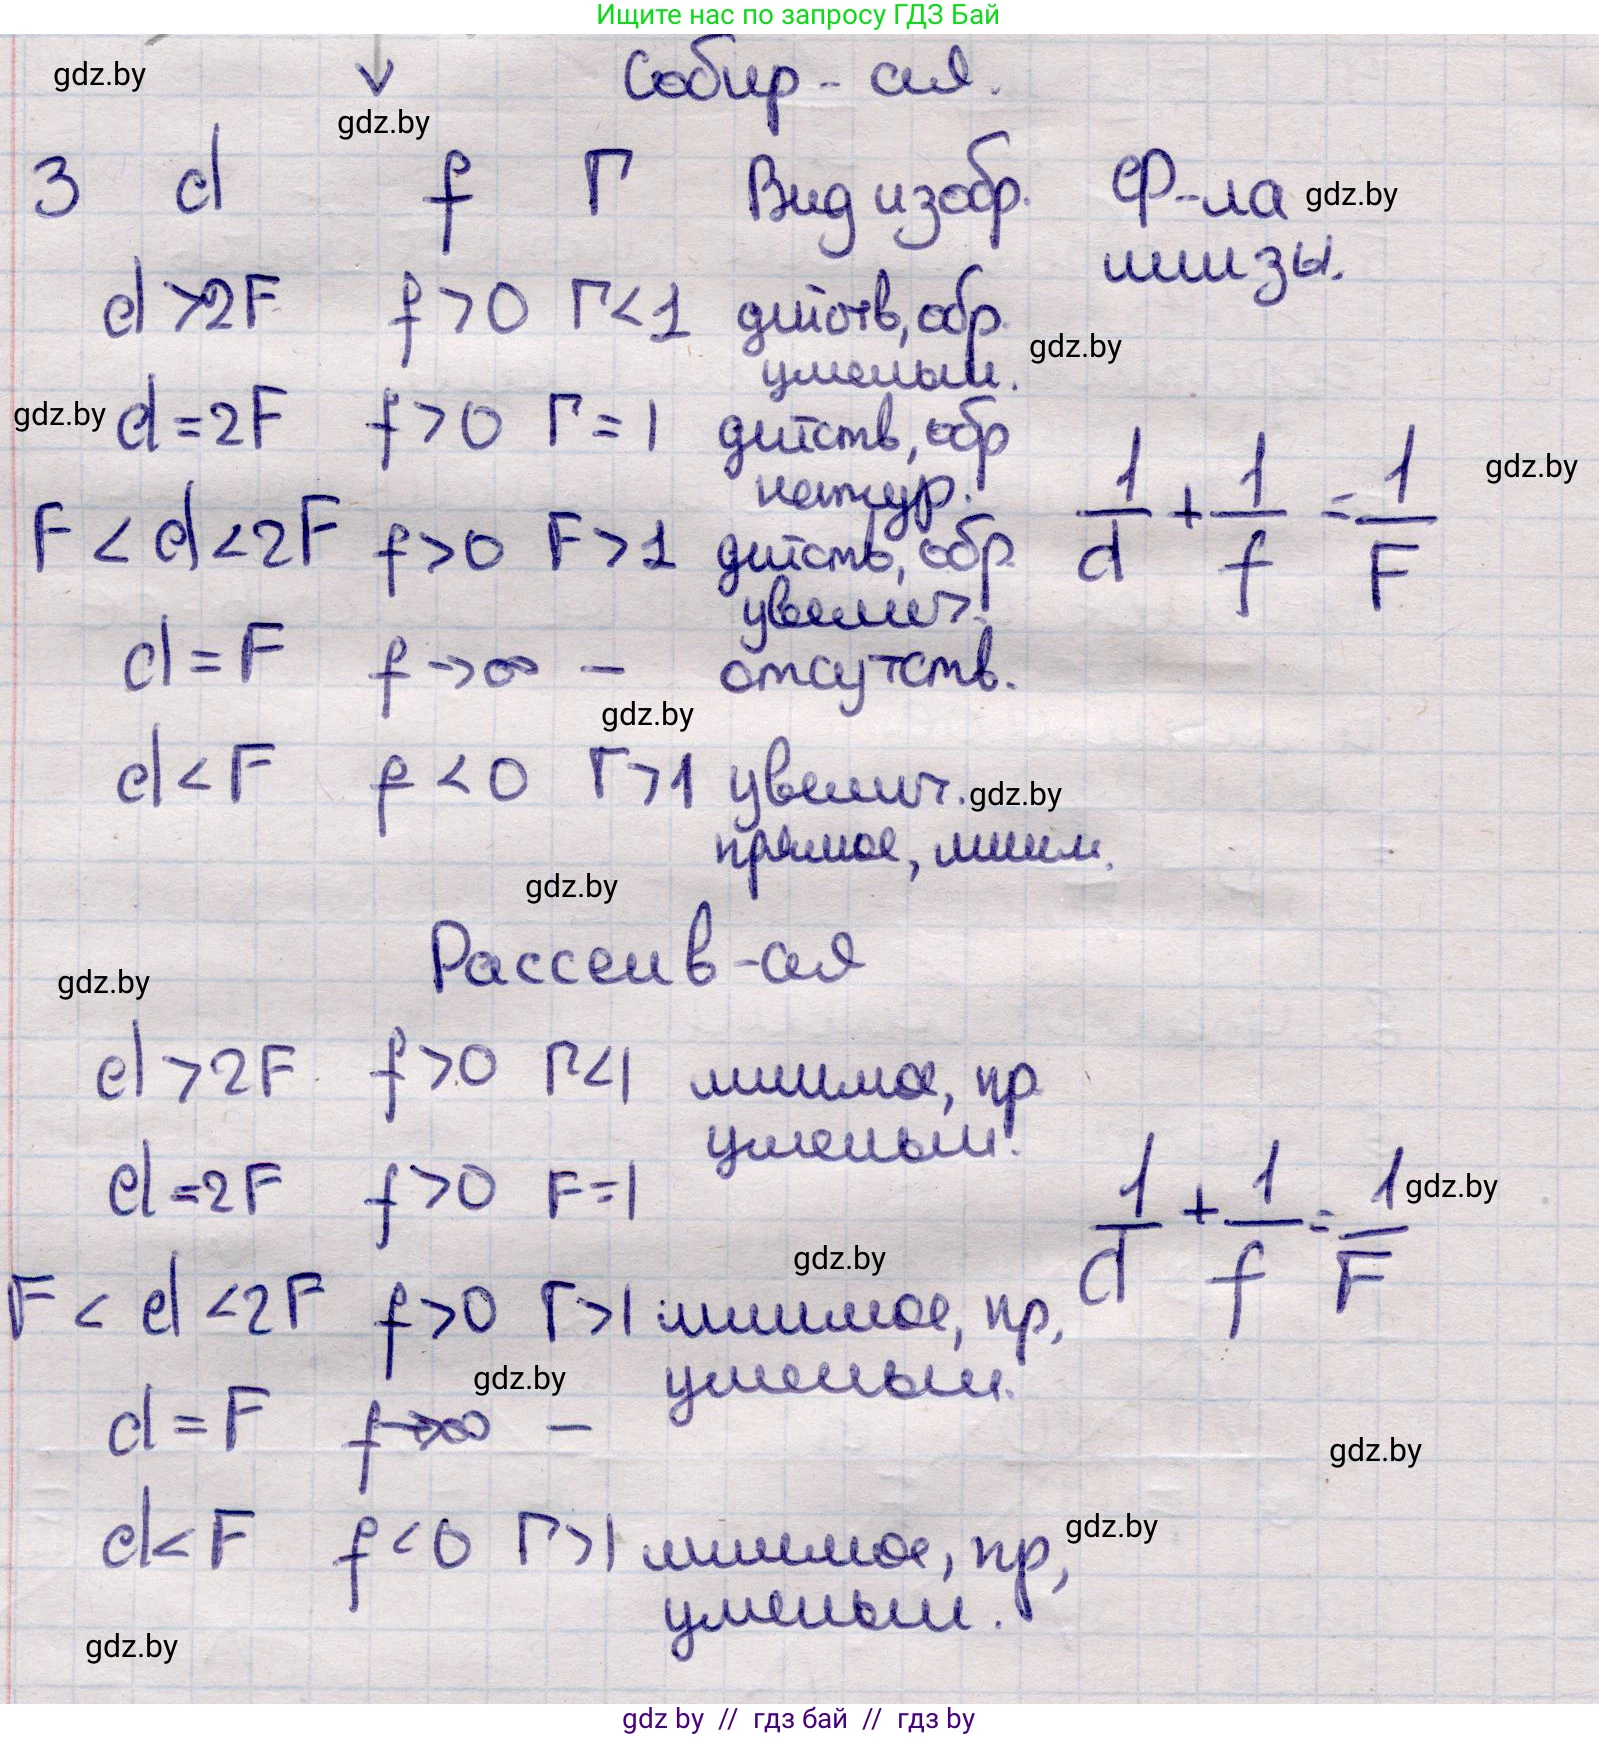 Ищите нас по запросу ГДЗ Бай
gdz.by
Собир-ая.
gdz.by
3 d f Г Вид изобр. Ф-ла линзы.
gdz.by
d >2F f >0 Г<1 действ, обр. уменьш.
gdz.by
gdz.by
d =2F f >0 Г=1 действ, обр натур.
1/d + 1/f = 1/F
gdz.by
F < d <2F f >0 F >1 действ, обр. увелич.
d = F f →∞ – отсутств.
gdz.by
d < F f < 0 Г >1 увелич. прямое, мним.
gdz.by
gdz.by
Рассеив-ая
gdz.by
d >2F f >0 Г<1 мнимое, пр уменьш.
d =2F f >0 F =1
1/d + 1/f = 1/F
gdz.by
gdz.by
F < d <2F f >0 Г >1 мнимое, пр, уменьш.
gdz.by
d = F f →∞ –
gdz.by
d < F f < 0 Г >1 мнимое, пр, уменьш.
gdz.by
gdz.by
gdz by // гдз бай // гдз by